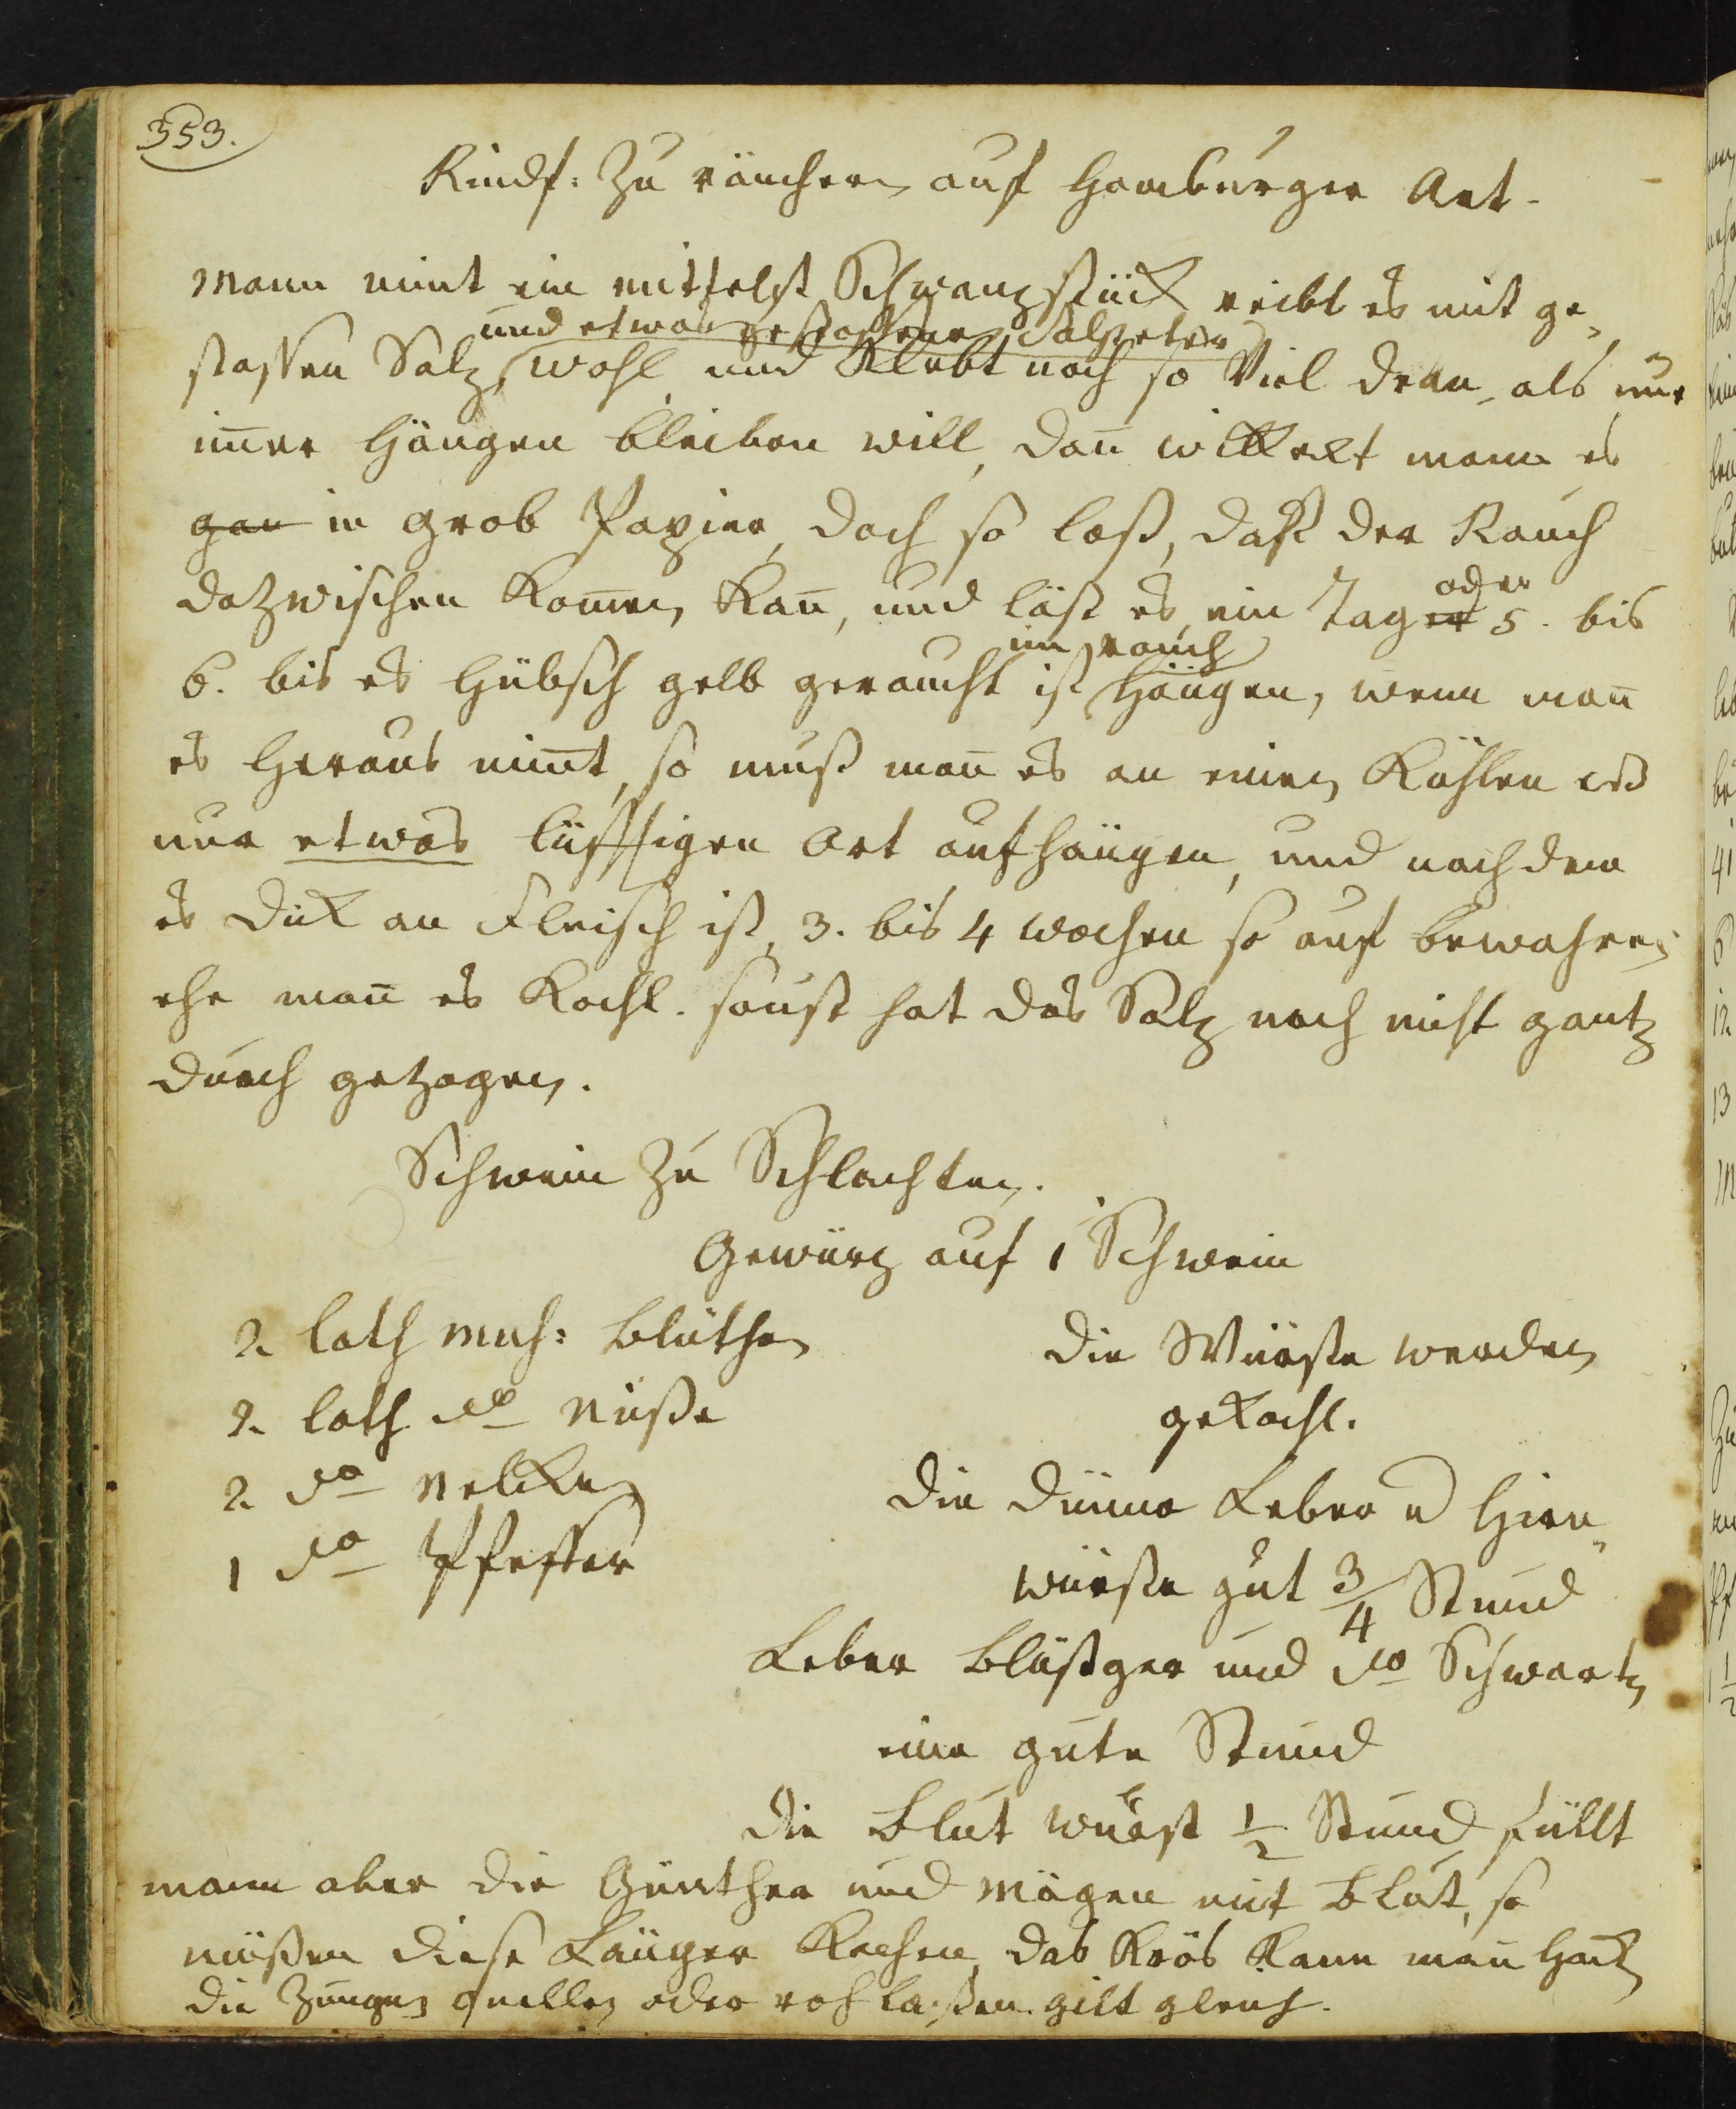 353.
Rindf: zu räuchern auf Hamburger Art.
Mann nimt ein mittelst Schwanzstück reibt es mit ge„
und etwas gestossenen Salpeter
stossen Saltz, wohl und Klebt noch so Viel dran, als nur
im̄er hängen bleiben will, dan̄ wikkelt mann es
gan in grob Papier, doch so loß, daß der Rauch
dazwischen Kom̄en Kan̄, und läst es, ein Tager oder 5. bis
im rauch
6. bis es hübsch gelb geraucht ist hängen, wenn man̄
es heraus nim̄t, so muß man̄ es an einen Kühlen
nur etwas lüfftigen Ort aufhängen, und nach dem
es dick an Fleisch ist, 3. bis 4 wochen so auf bewahren
ehe man̄ es Kocht. sonst hat das Saltz noch nicht gantz
durch gezogen.
Schwein zu Schlachten.
Gewürz auf 1 Schwein
2. loth Mus: Blüthen
2. loth do Nüsse
2. do Nelken
1 do Pfeffer
Die Würste werden
gekocht.
Die dünne Leber u Hirn„
würste gut 3/4 Stund
Leber Blästger und do Schwartz
eine gute Stund
Die Blut wurst 1/2 Stund, füllt
mann aber die und Mägen mit Blut, so
müssen diese Länger Kochen, das Krös Kann man̄
die Zungen quellen oder roh lassen. gilt gleich.